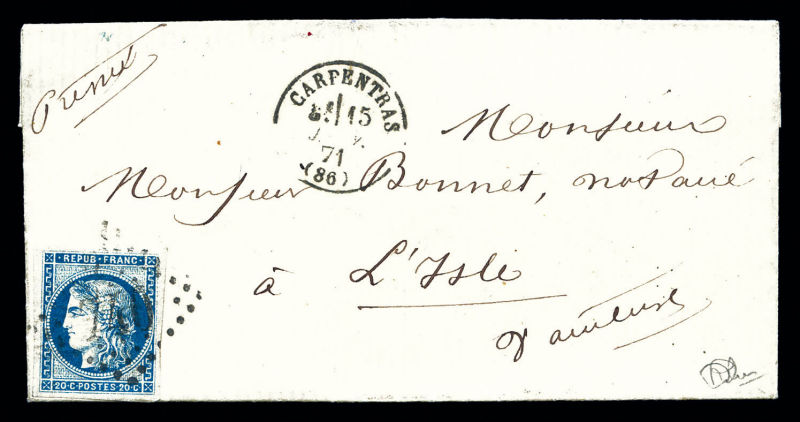 CARPENTRAS
15
71
(86)
Monsieur
Monsieur Bonnet, notaire
à L'Isle
Vaucluse
REPUB · FRANC ·
20 · C · POSTES · 20 · C ·